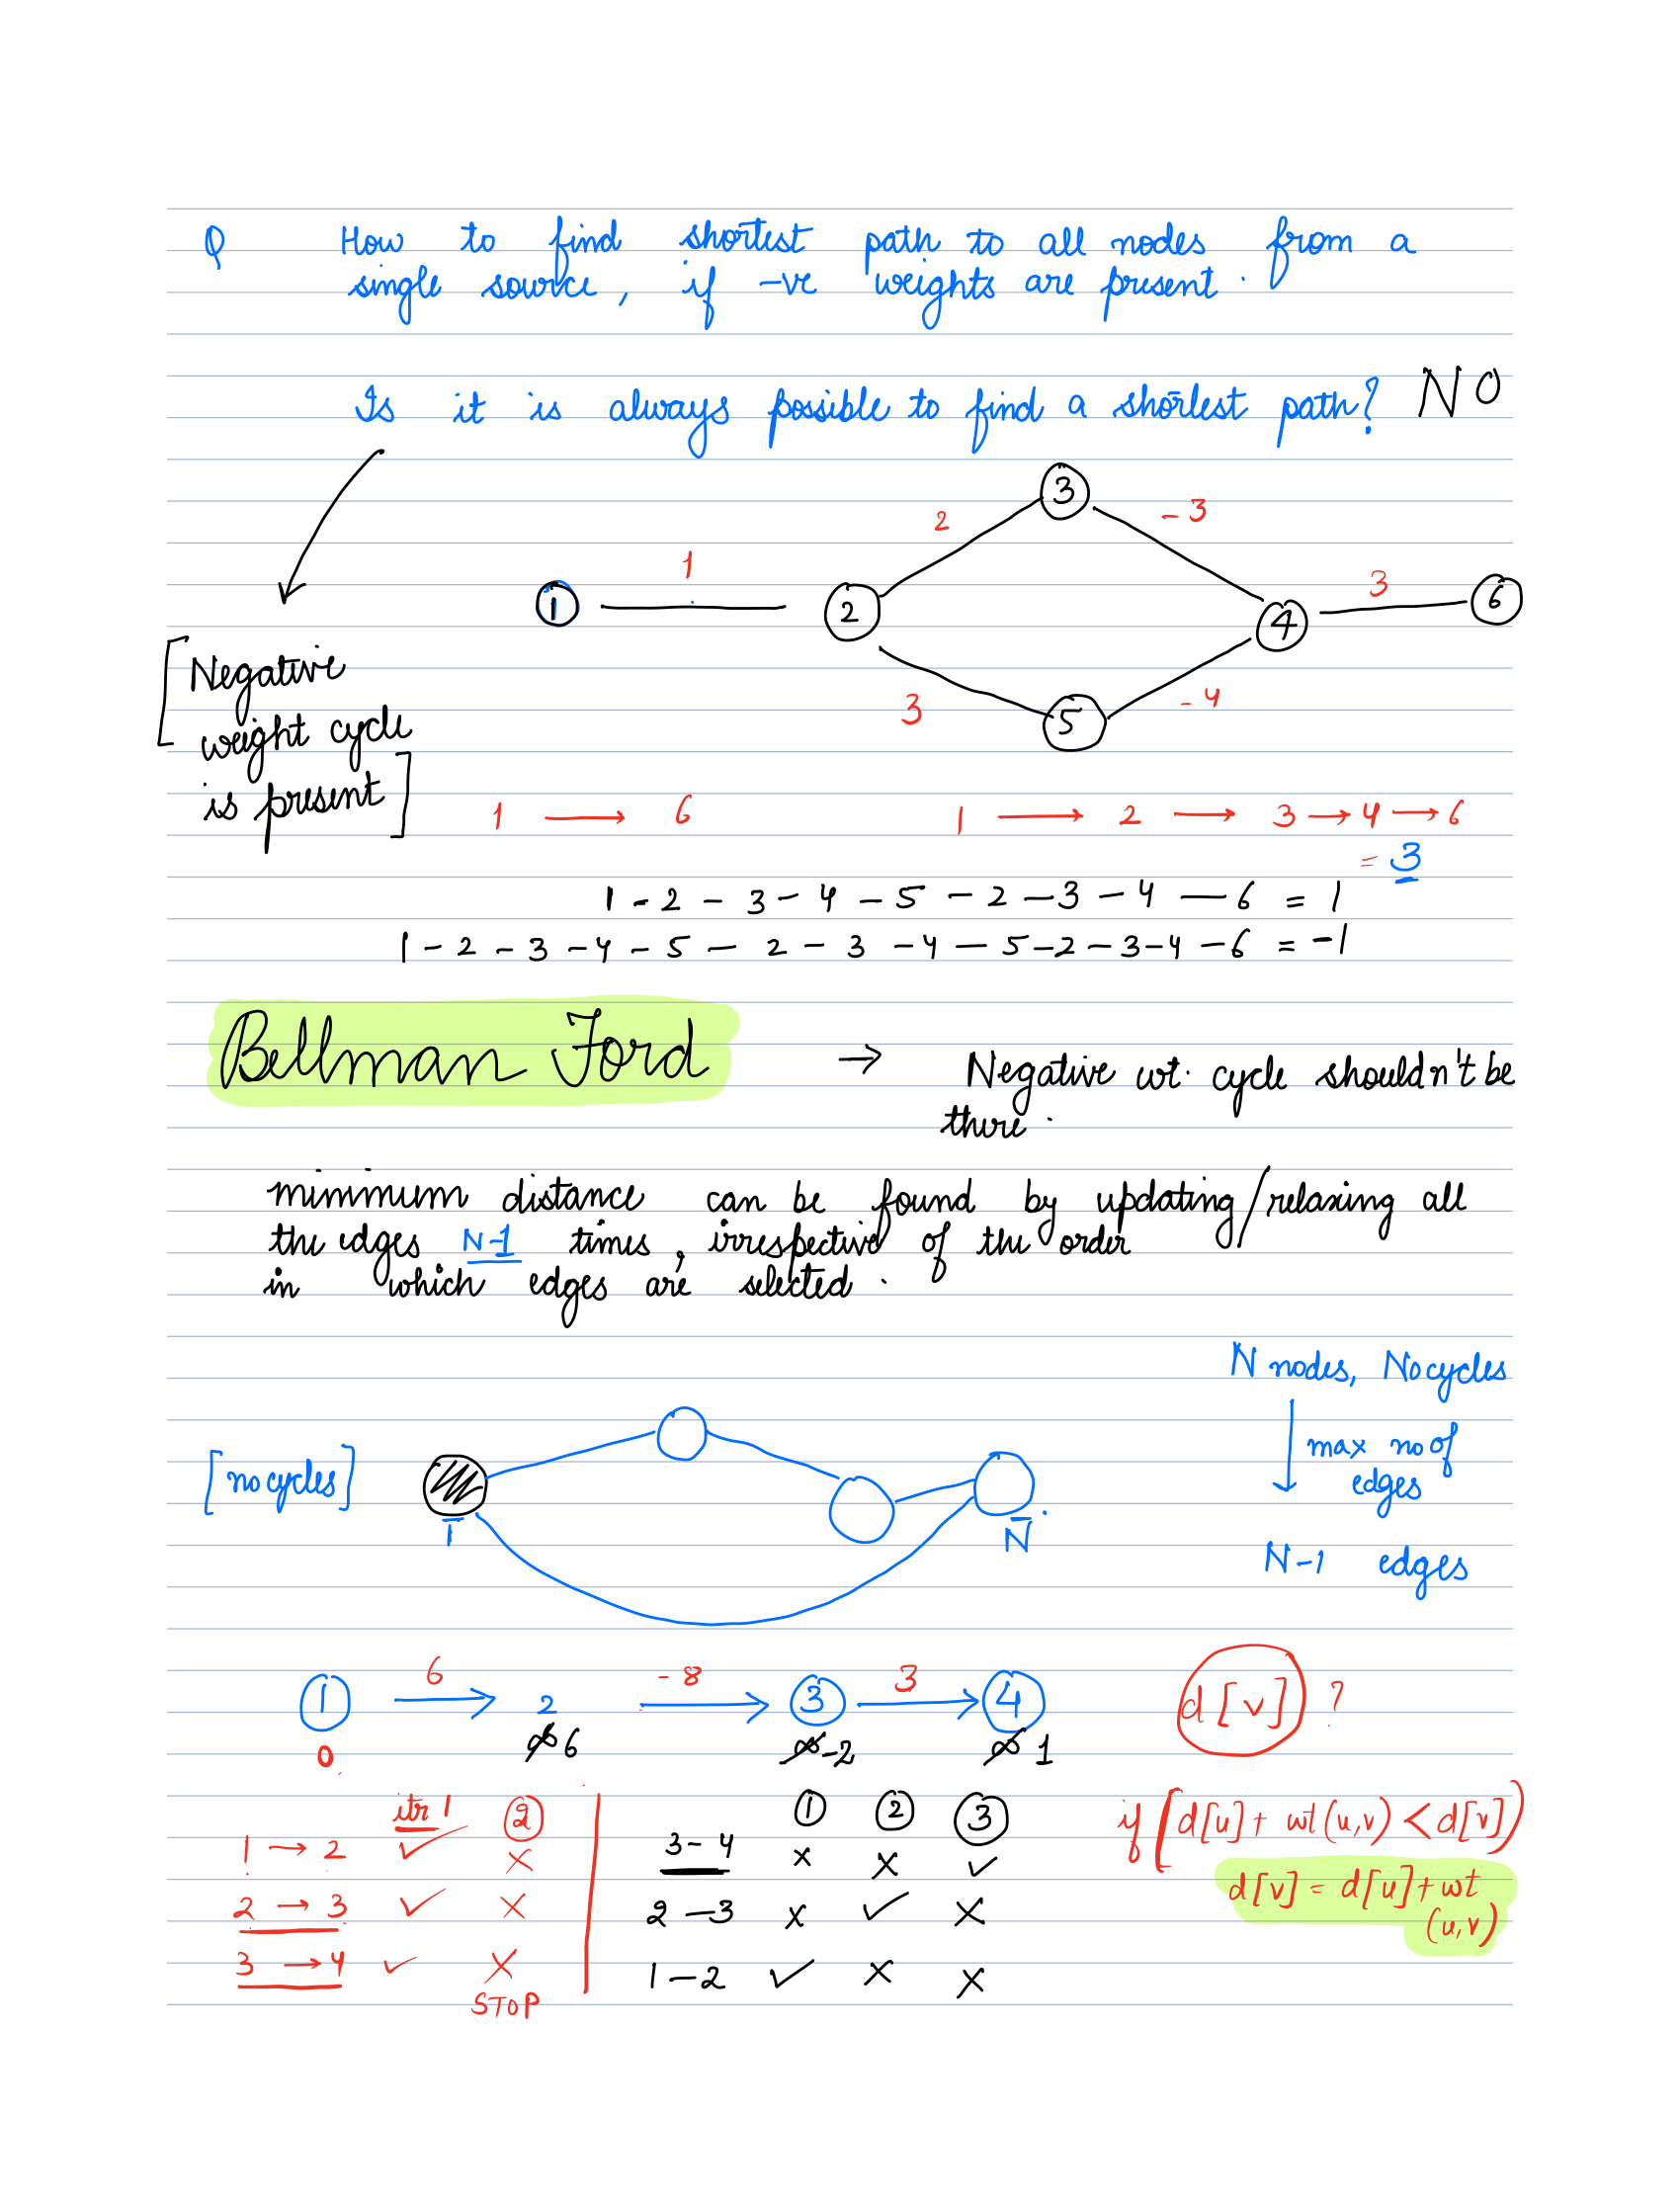 Q How to find shortest path to all nodes from a
single source, if -ve weights are present.
Is it is always possible to find a shortest path? NO
3
2 -3
1 3
1 2 4 6
3 -4
5
[Negative
weight cycle
is present]
1 → 6 1 → 2 → 3 → 4 → 6
= 3
1 - 2 - 3 - 4 - 5 - 2 - 3 - 4 - 6 = 1
1 - 2 - 3 - 4 - 5 - 2 - 3 - 4 - 5 - 2 - 3 - 4 - 6 = -1
Bellman Ford → Negative wt. cycle shouldn't be
there.
minimum distance can be found by updating/relaxing all
the edges N-1 times, irrespective of the order
in which edges are selected.
N nodes, No cycles
max no of
edges
N-1 edges
[no cycles]
1 N
6 -8 3
1 → 2 → 3 → 4 d[v] ?
0 ∞ 6 ∞ -2 ∞ 1
itr 1 2
1 → 2 ✓ ×
2 → 3 ✓ ×
3 → 4 ✓ ×
STOP
1 2 3
3 - 4 × × ✓
2 - 3 × ✓ ×
1 - 2 ✓ × ×
if [d[u] + wt(u,v) < d[v])
d[v] = d[u] + wt
(u,v)